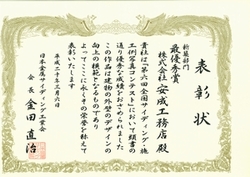 表彰状
新築部門
最優秀賞
株式会社 安成工務店 殿
貴社は「第六回全国サイディング・施
工例写真コンテスト」において頭書の
通り優秀な成績をおさめられました
この作品は建物の外壁のデザインの
向上の模範となるものであり
よってここに永くその栄誉を称えて
表彰いたします
平成二十年三月六日
日本金属サイディング工業会
会長 金田直治